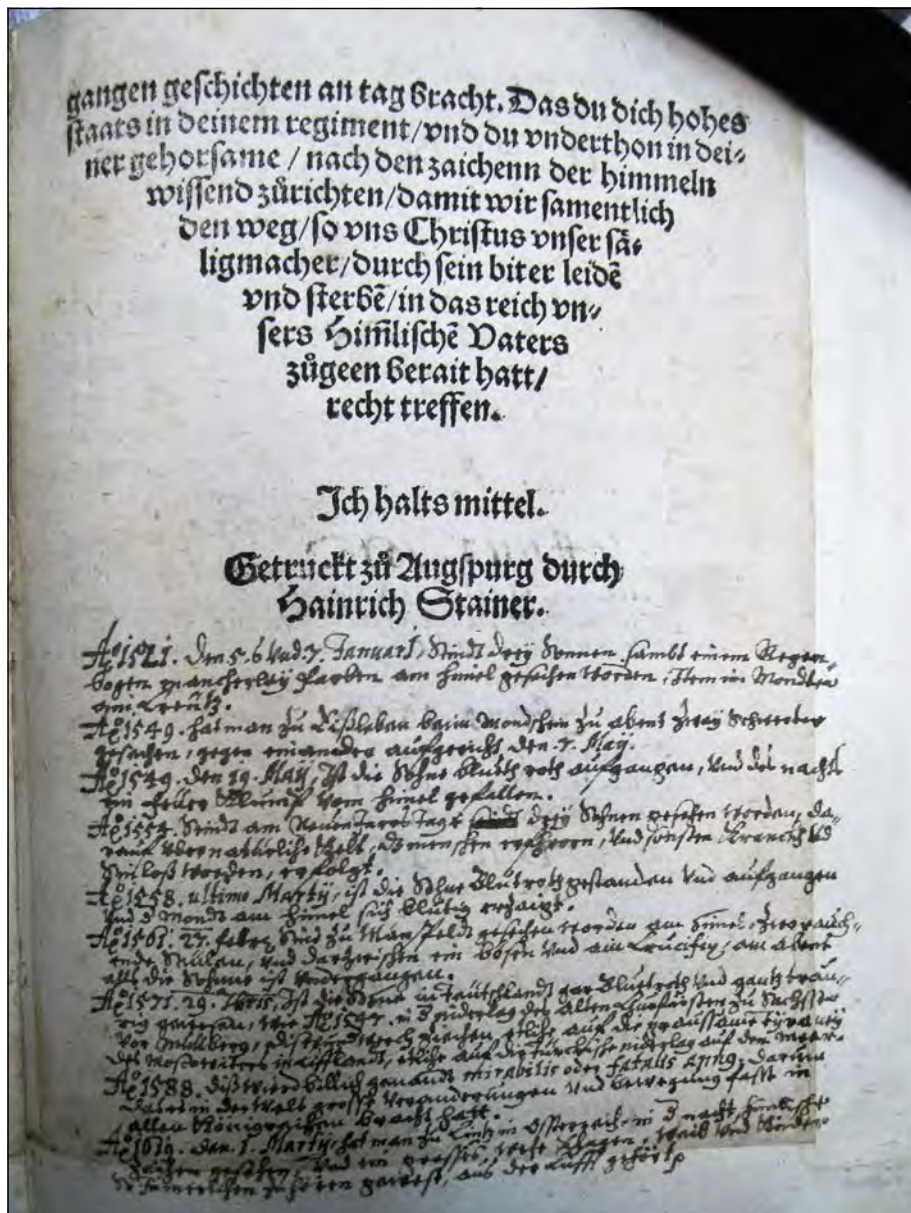 gangen geschichten an tag bracht. Das du dich hohes
staats in deinem regiment/vnd du vnderthon in dei⸗
ner gehorsame / nach den zaichenn der himmeln
wissend zůrichten/damit wir samentlich
den weg/so vns Christus vnser sä⸗
ligmacher/durch sein biter leidē
vnd sterbē/in das reich vn⸗
sers Him̄lischē Vaters
zůgeen berait hatt/
recht treffen.
Ich halts mittel.
Getruckt zů Augspurg durch
Hainrich Stainer.
Aº 1521. Den 5. 6 Vnd 7. Januarÿ, Sindt dreÿ Sonnen sambt einem Regen-
bogen mancherlaÿ farben am himel gesehen worden, Item im Mondten
ein Creütz.
Aº 1549. hat man zu Eißleben beim Mondschein zu abent zwaÿ Schwerter
gesehen, gegen einander aufgericht den 7. Maÿ.
Aº 1549. Den 29. Maÿ, Ist die Sohne bluth roth aufgangen, Vnd des nachts
ein feuer vom himel gefallen.
Aº 1554. Sindt am Neuen Jars Tage dreÿ Sohnen gesehen worden, da-
rauf, Vnd sonsten
worden, erfolgt.
Aº 1558. ultimo Martÿ, ist die Sohne Blutroth gestanden Vnd aufgangen
Vnd d Mondt am himel sich blutig erzaigt.
Aº 1561. 27. febr. Sind zu Mansfeldt gesehen worden am himel, zwo rauch-
ende Seulen, Vnd darzwischen ein Besen Vnd ain Crucifix, am abent
als die Sohnne ist Vndergangen.
Aº 1571. 29. Ist die Sone in Teutschlandt gar Blutroth Vnd gantz trau-
rig gewesen, wie Aº 1547. in d niderlag des Alten Churfürsten zu Sachssen
vor Müllberg, etliche auf die graussame tÿraneÿ
des Moscoviters in Lifflandt, etliche auf die Türckische niderlag auf dem Meer.
Aº 1588. billich genandt mirabilis oder fatalis Annus, darinn
in der Welt grosse Veranderungen Vnd bewegung fasst in
allen Königreichen bracht hatt.
Aº 1619. den 1. Martÿ, hat man zu Lintz in Össterreich, in d nacht
zaichen gesehen, Vnd ein grosses Klagen, Vnd Kinder
zu hören gewest, aus der Lufft gehört